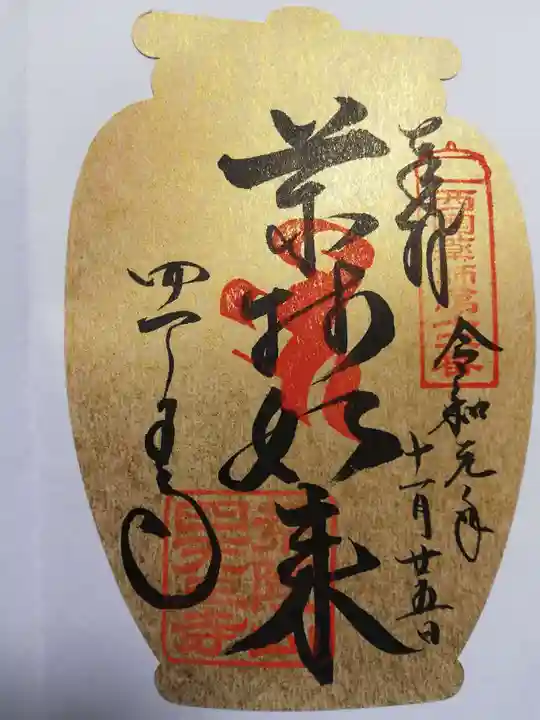 奉拝
令和元年
十一月廿五日
西国薬師第三番
薬師如来
四天王寺